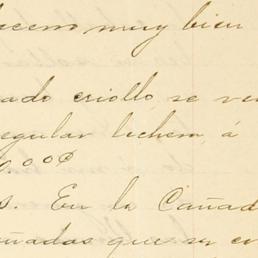 hacen muy bien
ado criollo, se ve
egular lechera, á
0.000
s. En la Cañad
añadas que se en